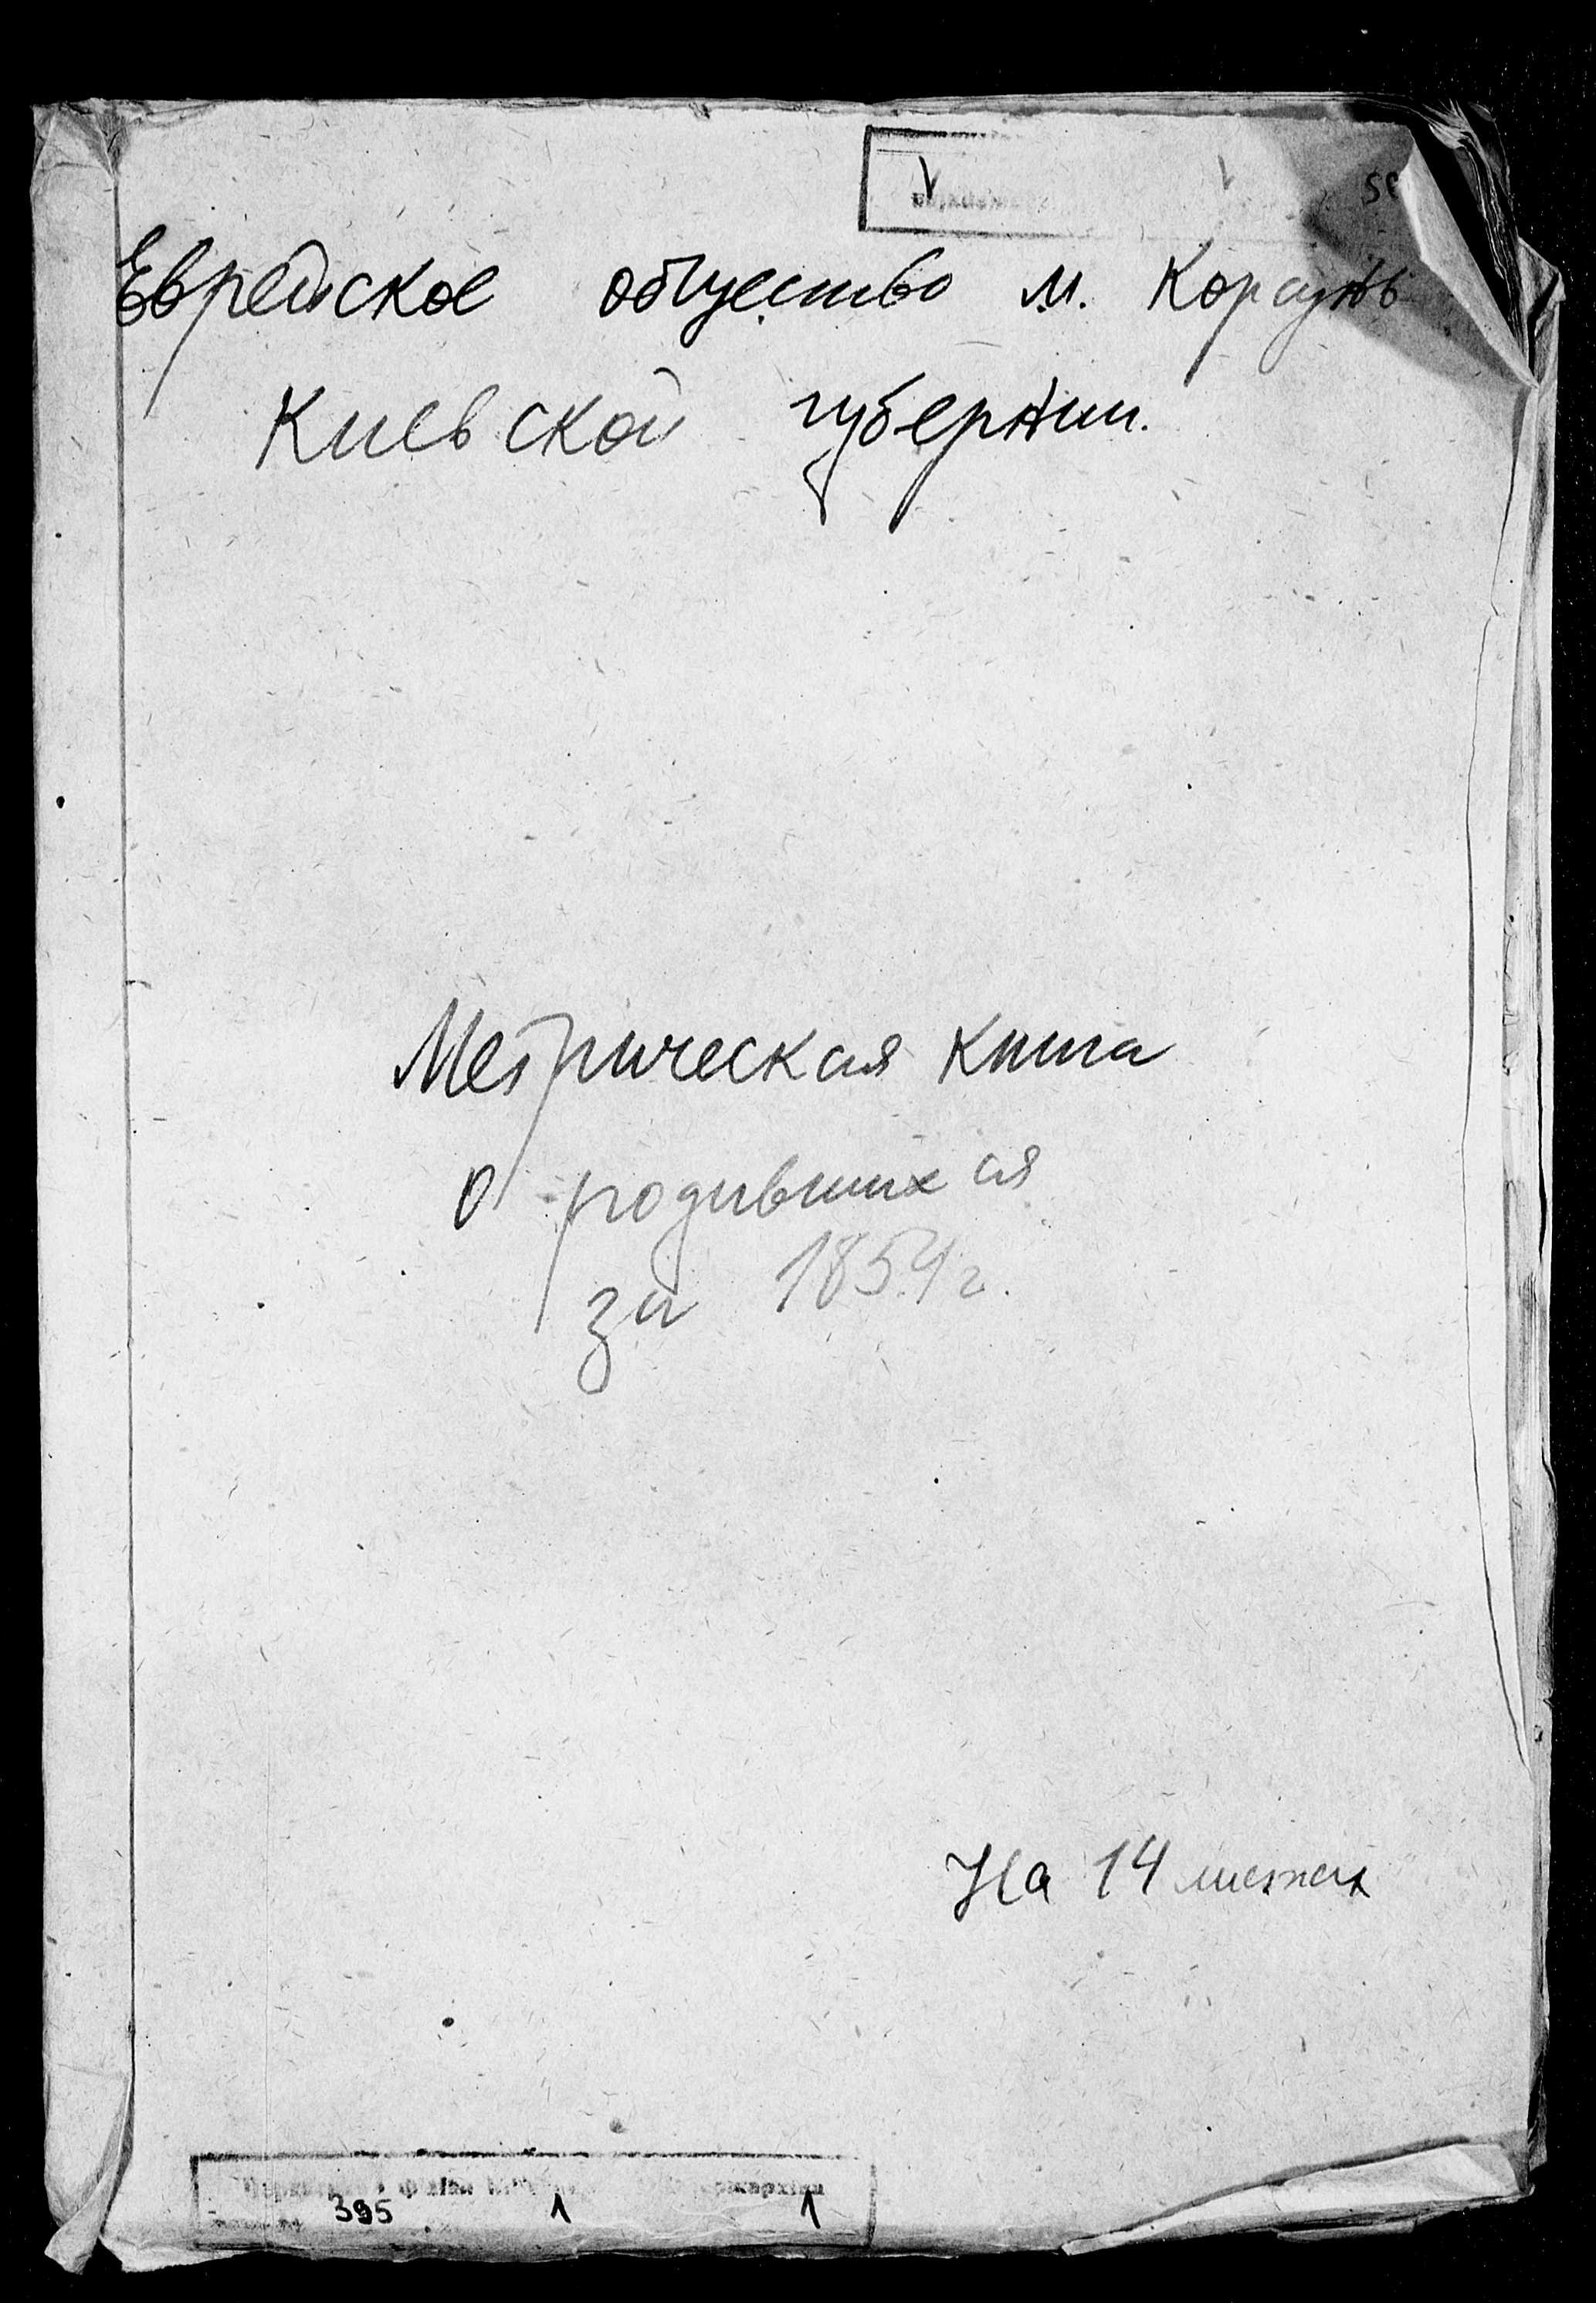 Еврейское общество м. Корсунь
Киевской губернии.
Метрическая книга
о родившихся
за 1854 г.
На 14 листах
395 1 1